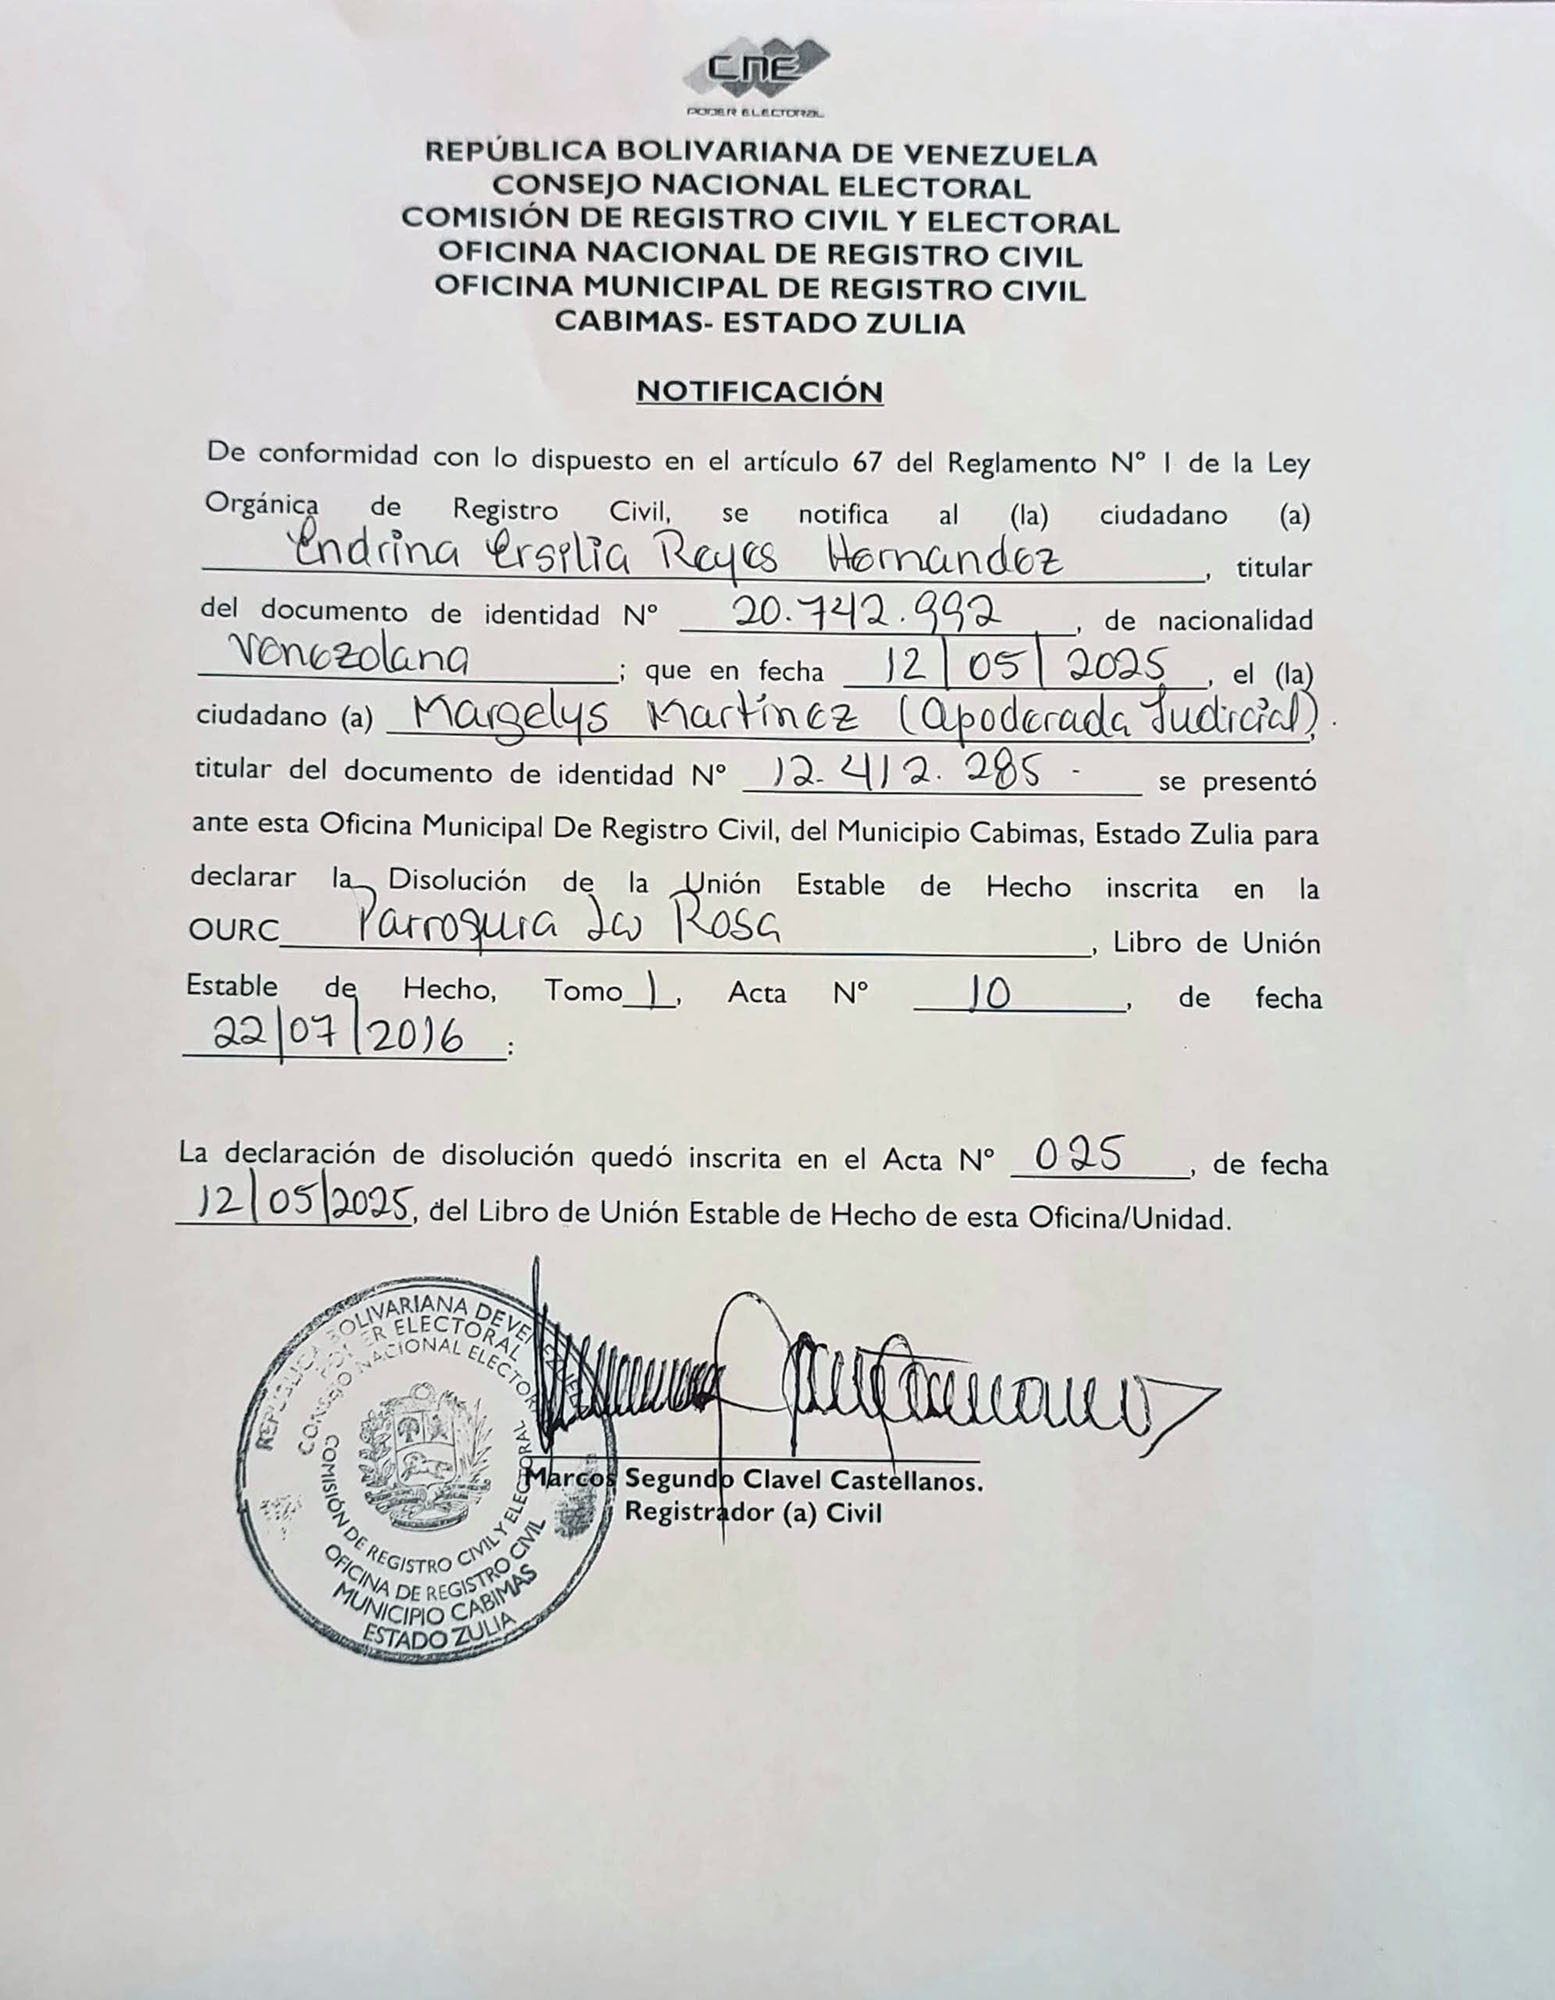 CNE
PODER ELECTORAL
REPÚBLICA BOLIVARIANA DE VENEZUELA
CONSEJO NACIONAL ELECTORAL
COMISIÓN DE REGISTRO CIVIL Y ELECTORAL
OFICINA NACIONAL DE REGISTRO CIVIL
OFICINA MUNICIPAL DE REGISTRO CIVIL
CABIMAS- ESTADO ZULIA
NOTIFICACIÓN
De conformidad con lo dispuesto en el artículo 67 del Reglamento N° 1 de la Ley
Orgánica de Registro Civil, se notifica al (la) ciudadano (a)
Endrina Ersilia Reyes Hernandez, titular
del documento de identidad N° 20.742.992, de nacionalidad
Venezolana; que en fecha 12/05/2025, el (la)
ciudadano (a) Margelys Martínez (Apoderada Judicial).,
titular del documento de identidad N° 12.412.285- se presentó
ante esta Oficina Municipal De Registro Civil, del Municipio Cabimas, Estado Zulia para
declarar la Disolución de la Unión Estable de Hecho inscrita en la
OURC Parroquia La Rosa, Libro de Unión
Estable de Hecho, Tomo 1, Acta N° 10, de fecha
22/07/2016:
La declaración de disolución quedó inscrita en el Acta N° 025, de fecha
12/05/2025, del Libro de Unión Estable de Hecho de esta Oficina/Unidad.
REPÚBLICA BOLIVARIANA DE VENEZUELA
PODER ELECTORAL
CONSEJO NACIONAL ELECTORAL
COMISIÓN DE REGISTRO CIVIL Y ELECTORAL
OFICINA DE REGISTRO CIVIL
MUNICIPIO CABIMAS
ESTADO ZULIA
Marcos Segundo Clavel Castellanos.
Registrador (a) Civil